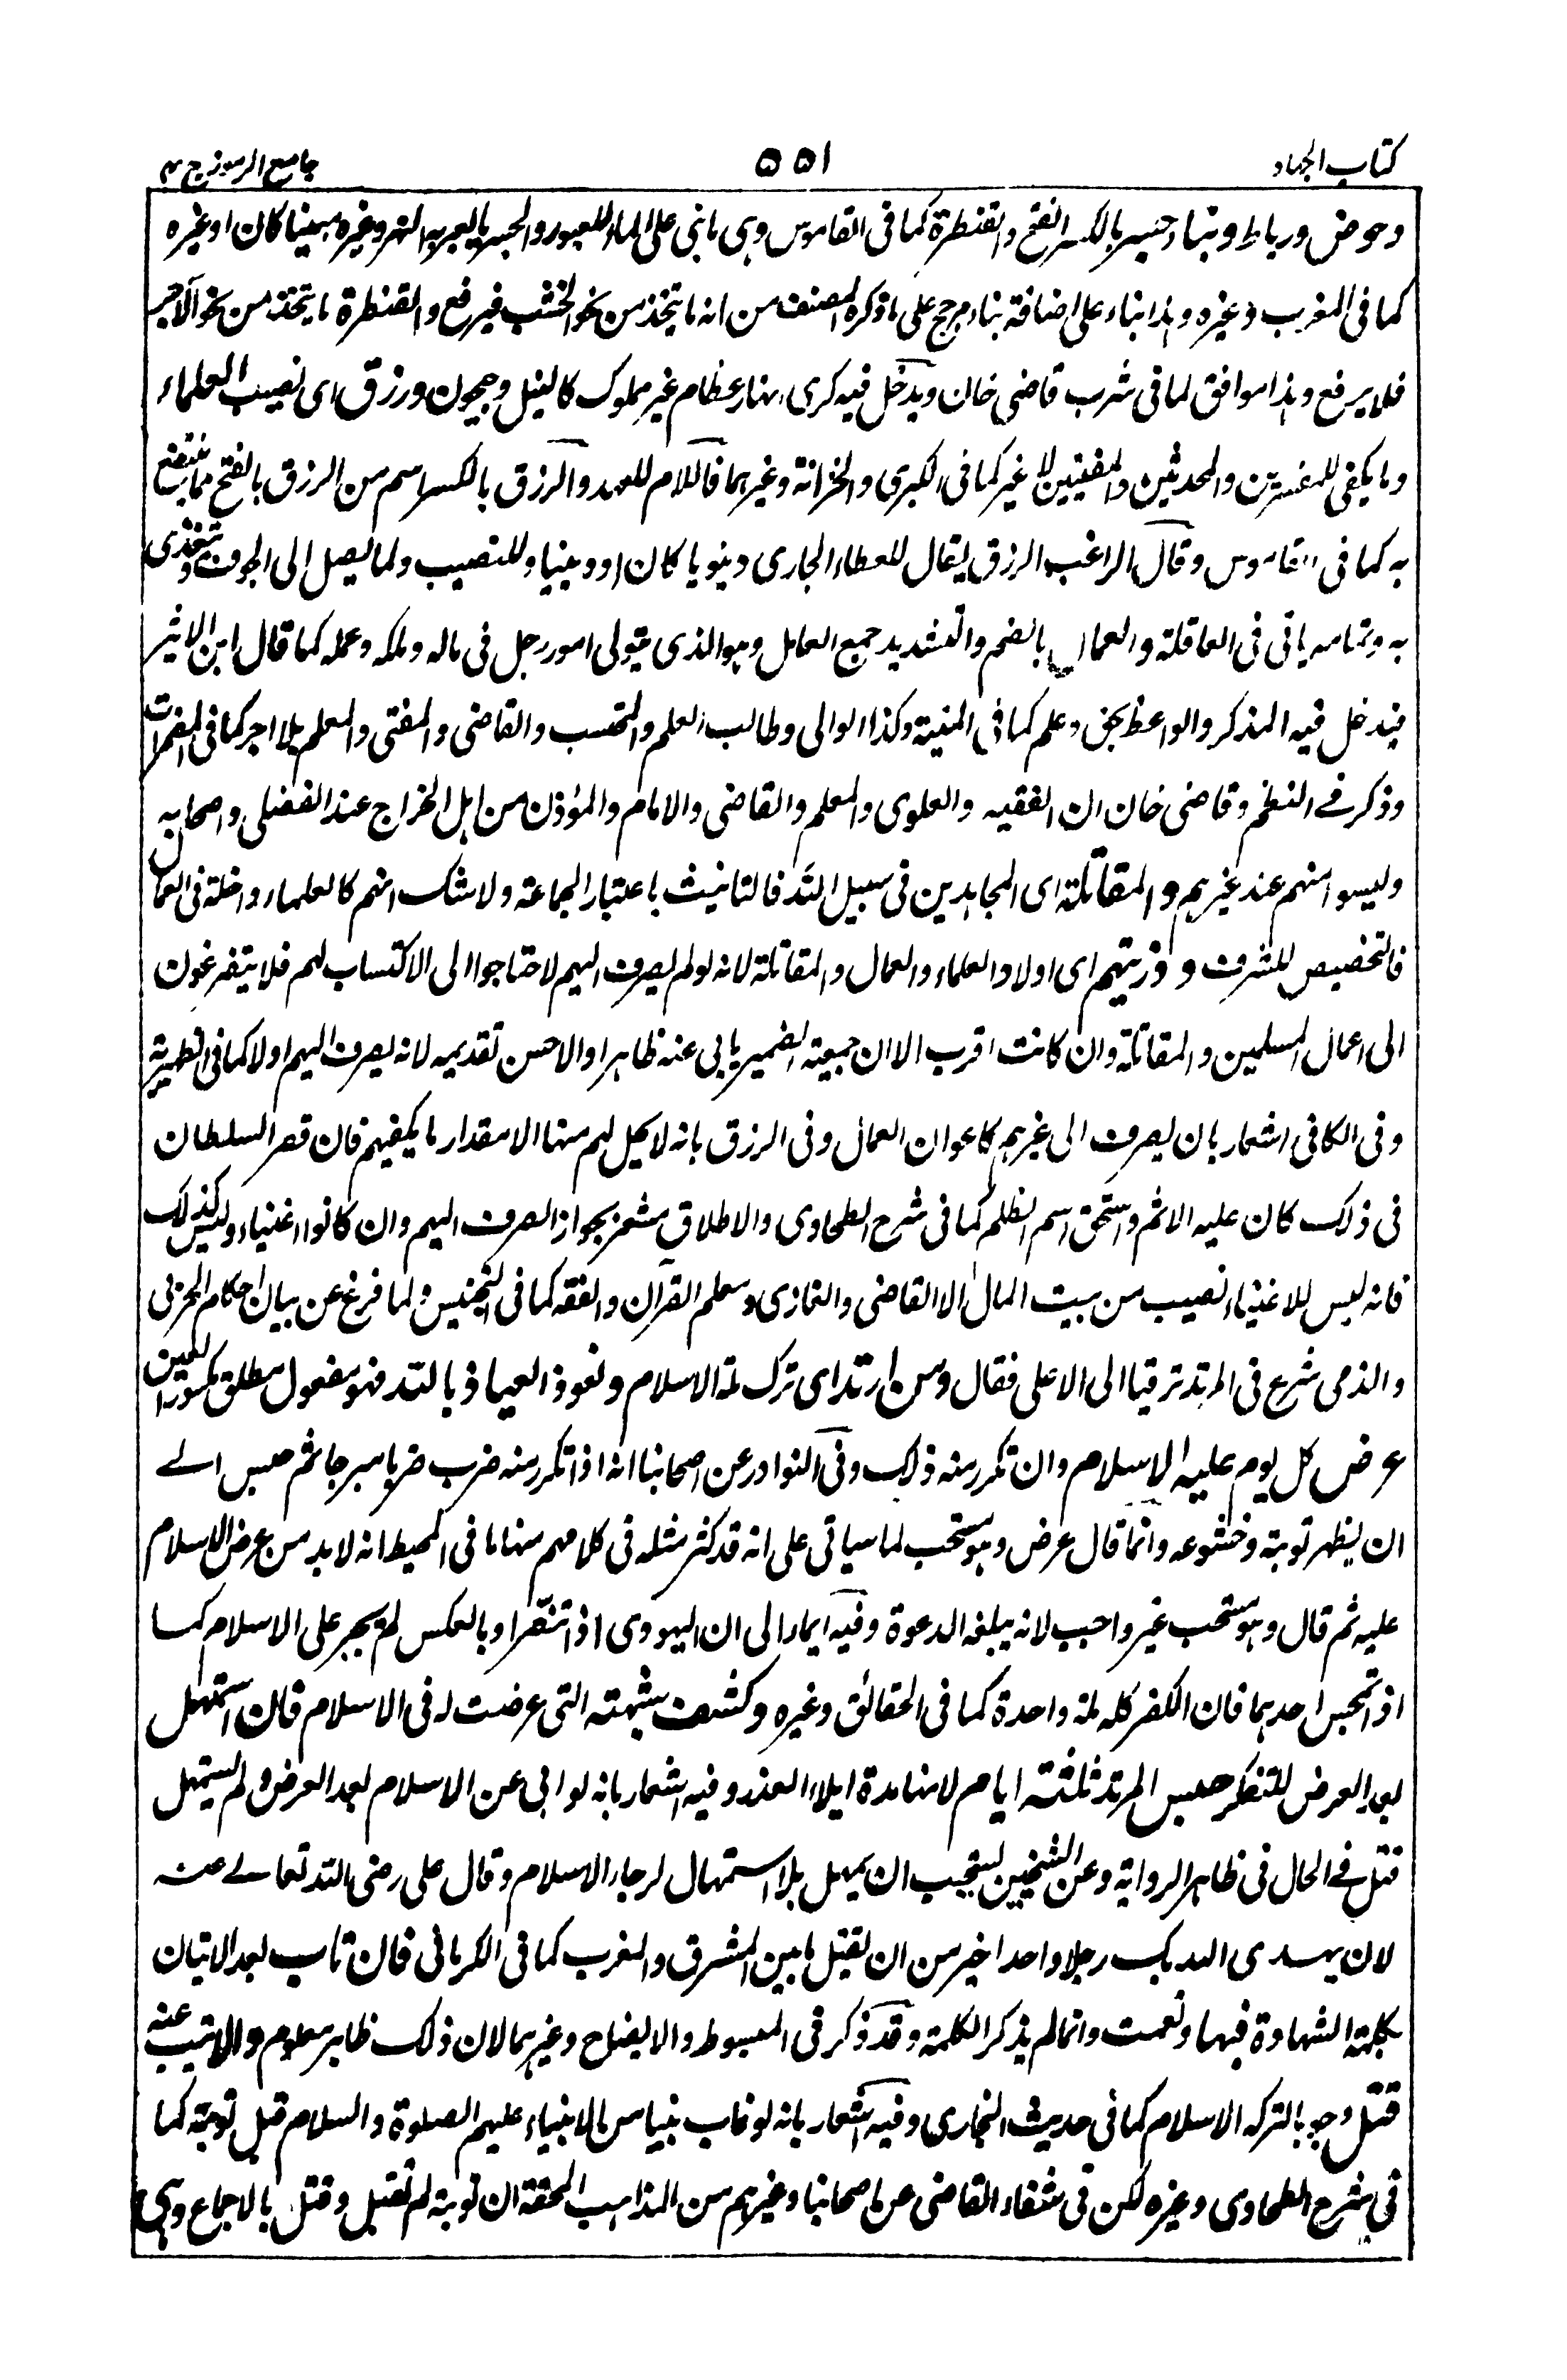 كتاب الجهاد ٥٥١ جامع الرموز ج ٢
وحوض ورباط وبناء جسر بالكسر والفتح والقنطرة كما فى القاموس وهى ما بنى على الماء للعبور والجسر ما يعبر به النهر وغيره مبنيا كان او غيره
كما فى المغرب وغيره وهذا بناء على اضافة بناء مرجح على ما ذكره المصنف من انه ما يتخذ من نحو الخشب فيرفع والقنطرة ما يتخذ من نحو الآجر
فلا يرفع وهذا موافق لما فى شرب قاضى خان ويدخل فيه كرى انهار عظام غير مملوك كالنيل وجيحون ورزق اى نصيب العلماء
وما يكفى للمفسرين والمحدثين والمفتيين لا غير كما فى الكبرى والخزانة وغيرهما فاللام للعهد والرزق بالكسر اسم من الرزق بالفتح مما ينتفع
به كما فى القاموس وقال الراغب الرزق يقال للعطاء الجارى دنيويا كان او دينيا وللنصيب ولما يصل الى الجوف ويتغذى
به وتمامه ياتى فى العاقلة والعمال بالضم والتشديد جمع العامل وهو الذى يتولى امور رجل فى ماله وملكه وعمله كما قال ابن الاثير
فيدخل فيه المذكر والواعظ بحق وعلم كما فى المنية وكذا الوالى وطالب العلم والمحتسب والقاضى والمفتى والمعلم بلا اجر كما فى المضمرات
وذكر فے النظم وقاضى خان ان الفقيه والعلوى والمعلم والقاضى والامام والمؤذن من اهل الخراج عند الفضلى واصحابه
وليسوا منهم عند غيرهم والمقاتلة اى المجاهدين فى سبيل الله فالتانيث باعتبار الجماعة ولا شك انهم كالعلماء داخلة فى العمال
فالتخصيص للشرف وذريتهم اى اولاد العلماء والعمال والمقاتلة لانه لو لم يصرف اليهم لاحتاجوا الى الاكتساب لهم فلا يتفرغون
الى اعمال المسلمين والمقاتلة وان كانت اقرب الا ان جمعية الضمير يابى عنه ظاهرا والاحسن تقديمه لانه يصرف اليهم اولا كما فى الظهيرية
وفى الكافى اشعار بان يصرف الى غيرهم كاعوان العمال وفى الرزق بانه لا يحل لهم منها الا مقدار ما يكفيهم فان قصر السلطان
فى ذلك كان عليه الاثم واستحق اسم الظلم كما فى شرح الطحاوى والاطلاق مشعر بجواز الصرف اليهم وان كانوا اغنياء وليس كذلك
فانه ليس للاغنياء نصيب من بيت المال الا القاضى والغازى ومعلم القرآن والفقه كما فى التجنيس ولما فرغ عن بيان احكام الحربى
والذمى شرع فى المرتد ترقيا الى الاعلى فقال ومن ارتد اى ترك ملة الاسلام ونعوذ العياذ بالله فهو مفعول مطلق مكسورة العين
عرض كل يوم عليه الاسلام وان تكرر منه ذلك وفى النوادر عن اصحابنا انه اذا تكرر منه ضرب ضربا مبرحا ثم حبس الے
ان يظهر توبته وخشوعه وانما قال عرض وهو مستحب لما سياتى على انه قد كثر مثله فى كلامهم منها ما فى المحيط انه لا بد من عرض الاسلام
عليه ثم قال وهو مستحب غير واجب لانه يبلغه الدعوة وفيه ايماء الى ان اليهودى اذا تنصر او بالعكس لم يجبر على الاسلام كما
اذا تمجس احدهما فان الكفر كله ملة واحدة كما فى الحقائق وغيره وكشف شبهته التى عرضت له فى الاسلام فان استمهل
بعد العرض للتفكر حبس المرتد ثلثة ايام لانها مدة ايلاء العذر وفيه اشعار بانه لو ابى عن الاسلام بعد العرض ولم يستمهل
قتل فے الحال فى ظاهر الرواية وعن الشيخين يستحب ان يمهل بلا استمهال لرجاء الاسلام وقال على رضى الله تعالے عنه
لان يهدى الله بك رجلا واحدا خير من ان يقتل ما بين المشرق والمغرب كما فى الكرمانى فان تاب بعد الاتيان
بكلمة الشهادة فبها ونعمت وانما لم يذكر الكلمة وقد ذكر فى المبسوط والايضاح وغيرهما لان ذلك ظاهر معلوم والا يتب عنه
قتل وجوبا لتركه الاسلام كما فى حديث البخارى وفيه اشعار بانه لو عاب نبيا من الانبياء عليهم الصلوة والسلام قبل توبته كما
فى شرح الطحاوى وغيره لكن فى شفاء القاضى عن اصحابنا وغيرهم من المذاهب المحقة ان توبته لم تقبل وقتل بالاجماع وهى